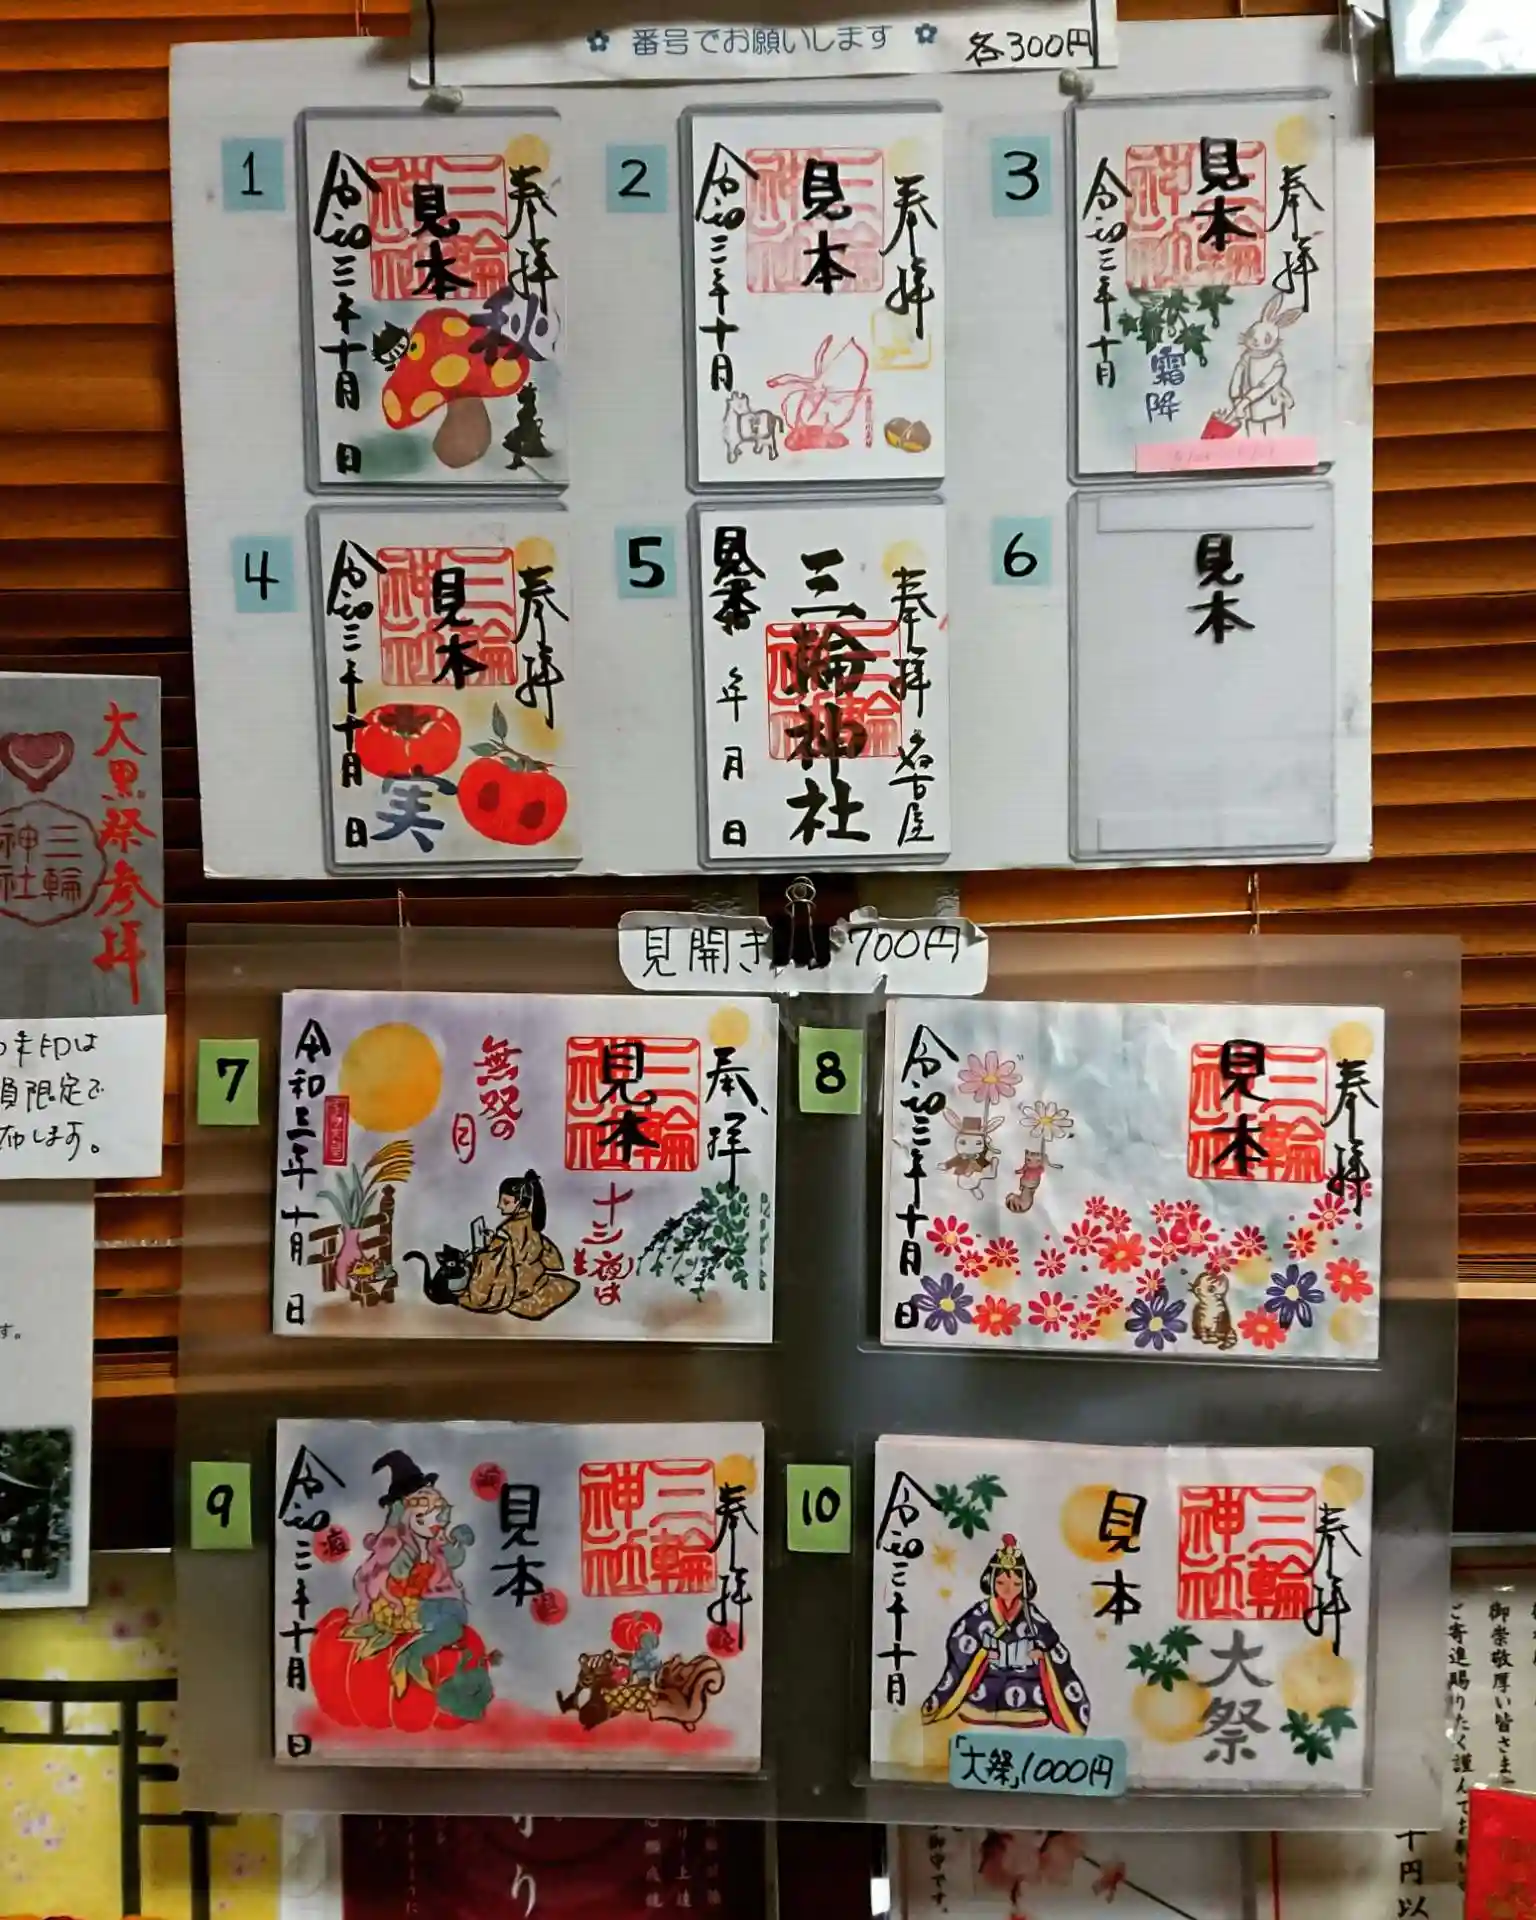 番号でお願いします 各300円
1
奉拝
三輪神社
見本
秋
令和三年十月 日
2
奉拝
三輪神社
見本
令和三年十月
3
奉拝
三輪神社
見本
霜降
令和三年十月
4
奉拝
三輪神社
見本
実
令和三年十月 日
5
奉拝 名古屋
三輪神社
三輪神社
見本
年 月 日
6
見本
大黒祭参拝
三輪神社
限定で
します。
見開き 700円
7
奉拝
三輪神社
見本
十三夜は
無双の月
令和三年十月 日
8
奉拝
三輪神社
見本
令和三年十月 日
9
奉拝
三輪神社
見本
令和三年十月 日
10
奉拝
三輪神社
見本
大祭
令和三年十月
「大祭」1000円
御崇敬厚い皆さま
ご寄進賜りたく謹んでお
千円以